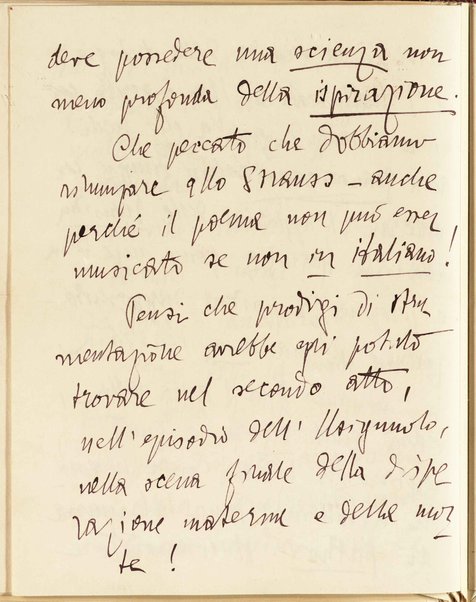 deve possedere una scienza non
meno profonda della ispirazione.
Che peccato che dobbiamo
rinunziare allo Strauss – anche
perché il poema non può esser
musicato se non in italiano!
Pensi che prodigi di stru-
mentazione avrebbe egli potuto
trovare nel secondo atto,
nell'episodio dell'Usignuolo,
nella scena finale della dispe
razione materna e della mor
te!